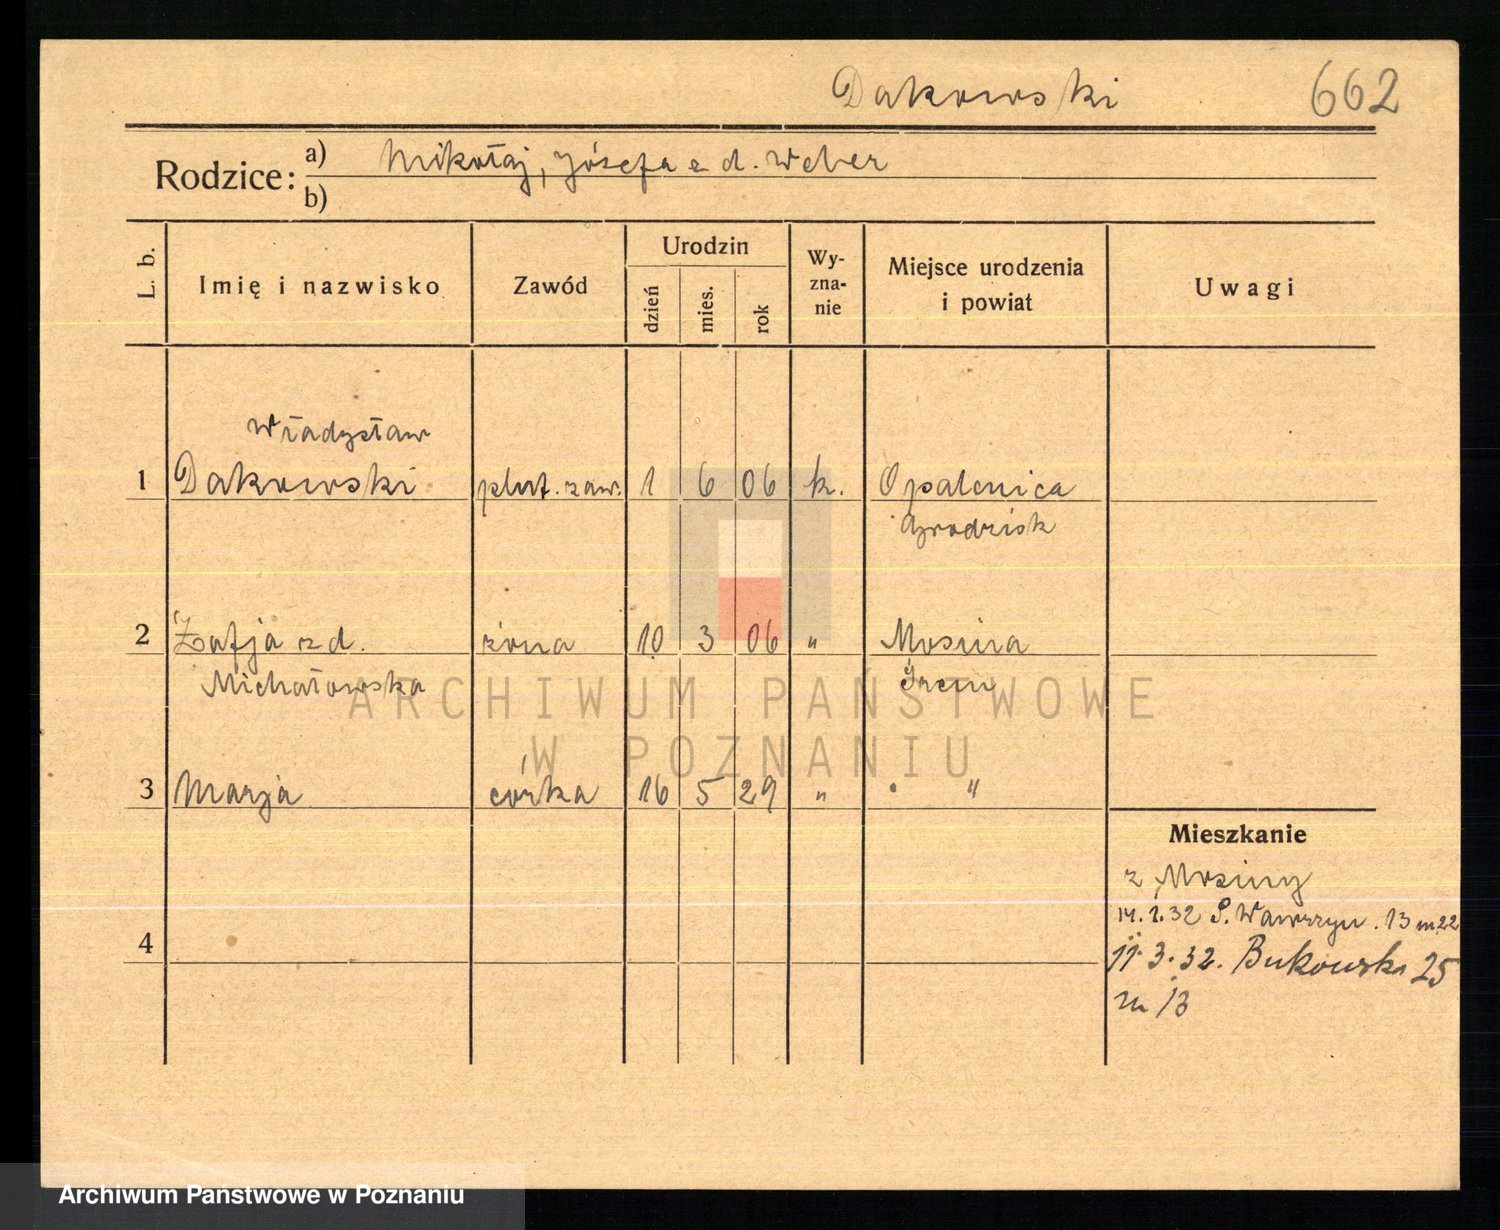 Dakowski 662
Rodzice: a) Mikołaj, Józefa z d. Weber
b)
L. b. Imię i nazwisko Zawód Urodzin dzień mies. rok Wy-zna-nie Miejsce urodzenia i powiat Uwagi
Władysław
1 Dakowski plut. zaw. 1 6 06 k. Opalenica
Grodzisk
2 Zofja z d. żona 10 3 06 " Mosina
Michałowska Śrem
3 Marja córka 16 5 29 " " "
Mieszkanie
z Mosiny
14. 1. 32 Ś. Wawrzyn. 13 m 22
4
11. 3. 32. Bukowska 25
m 13
ARCHIWUM PAŃSTWOWE
W POZNANIU
Archiwum Państwowe w Poznaniu